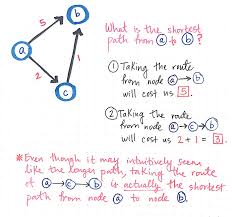 b
5
a
1
2
c
What is the shortest
path from a to b ?
① Taking the route
from node a → b
will cost us 5.
② Taking the route
from node a → c → b
will cost us 2 + 1 = 3.
*Even though it may intuitively seem
like the longer path, taking the route
of a → c → b is actually the shortest
path from node a to node b.